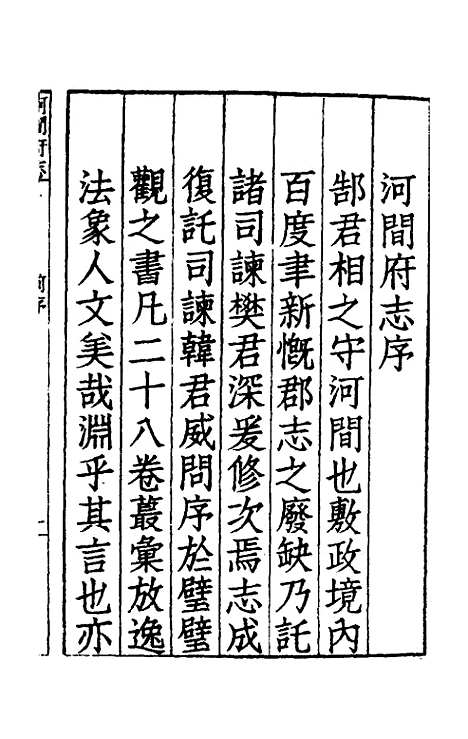 河間府志序
郜君相之守河間也敷政境內
百度聿新慨郡志之廢缺乃託
諸司諫樊君深爰修次焉志成
復託司諫韓君威問序於璧璧
觀之書凡二十八卷蕞彙放逸
法象人文美哉淵乎其言也亦
河間府志
前序